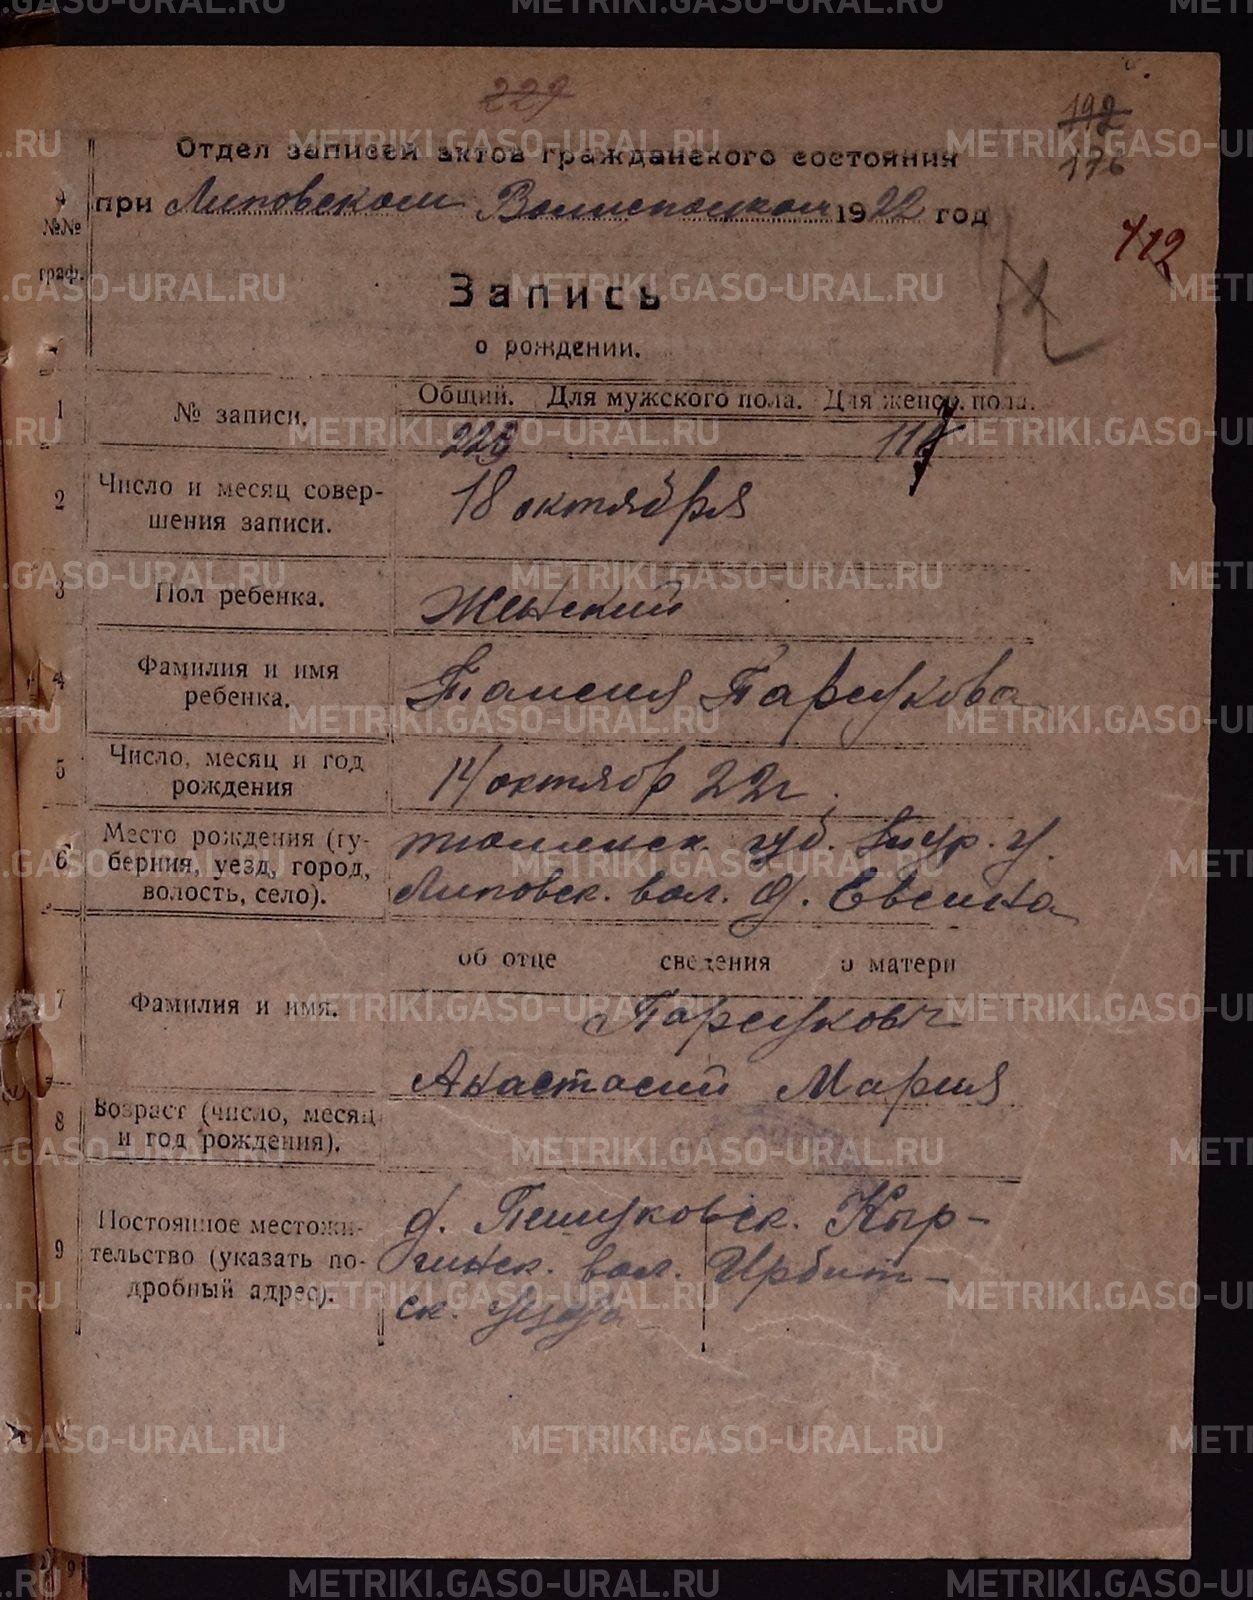 229
192
176
112
Отдел записей актов гражданского состояния
при Липовском Волисполком 1922 год
№№
граф.
Запись
о рождении.
Общий. Для мужского пола. Для женск. пола.
1 № записи. 228
2 Число и месяц совер-
шения записи.
18 октября
3 Пол ребенка. Женский
4 Фамилия и имя
ребенка.
Таисия Парсукова
5 Число, месяц и год
рождения
14 октябр 22 г.
6 Место рождения (гу-
берния, уезд, город,
волость, село).
тюменск. губ. Тур. у.
Липовск. вол. д. Евсина
об отце сведения о матери
7 Фамилия и имя.
Парсуковы
Анастасий Мария
8 Возраст (число, месяц
и год рождения).
9 Постоянное местожи-
тельство (указать по-
дробный адрес).
д. Кыр-
гинск. вол. Ирбит-
ск. уезда
METRIKI.GASO-URAL.RU